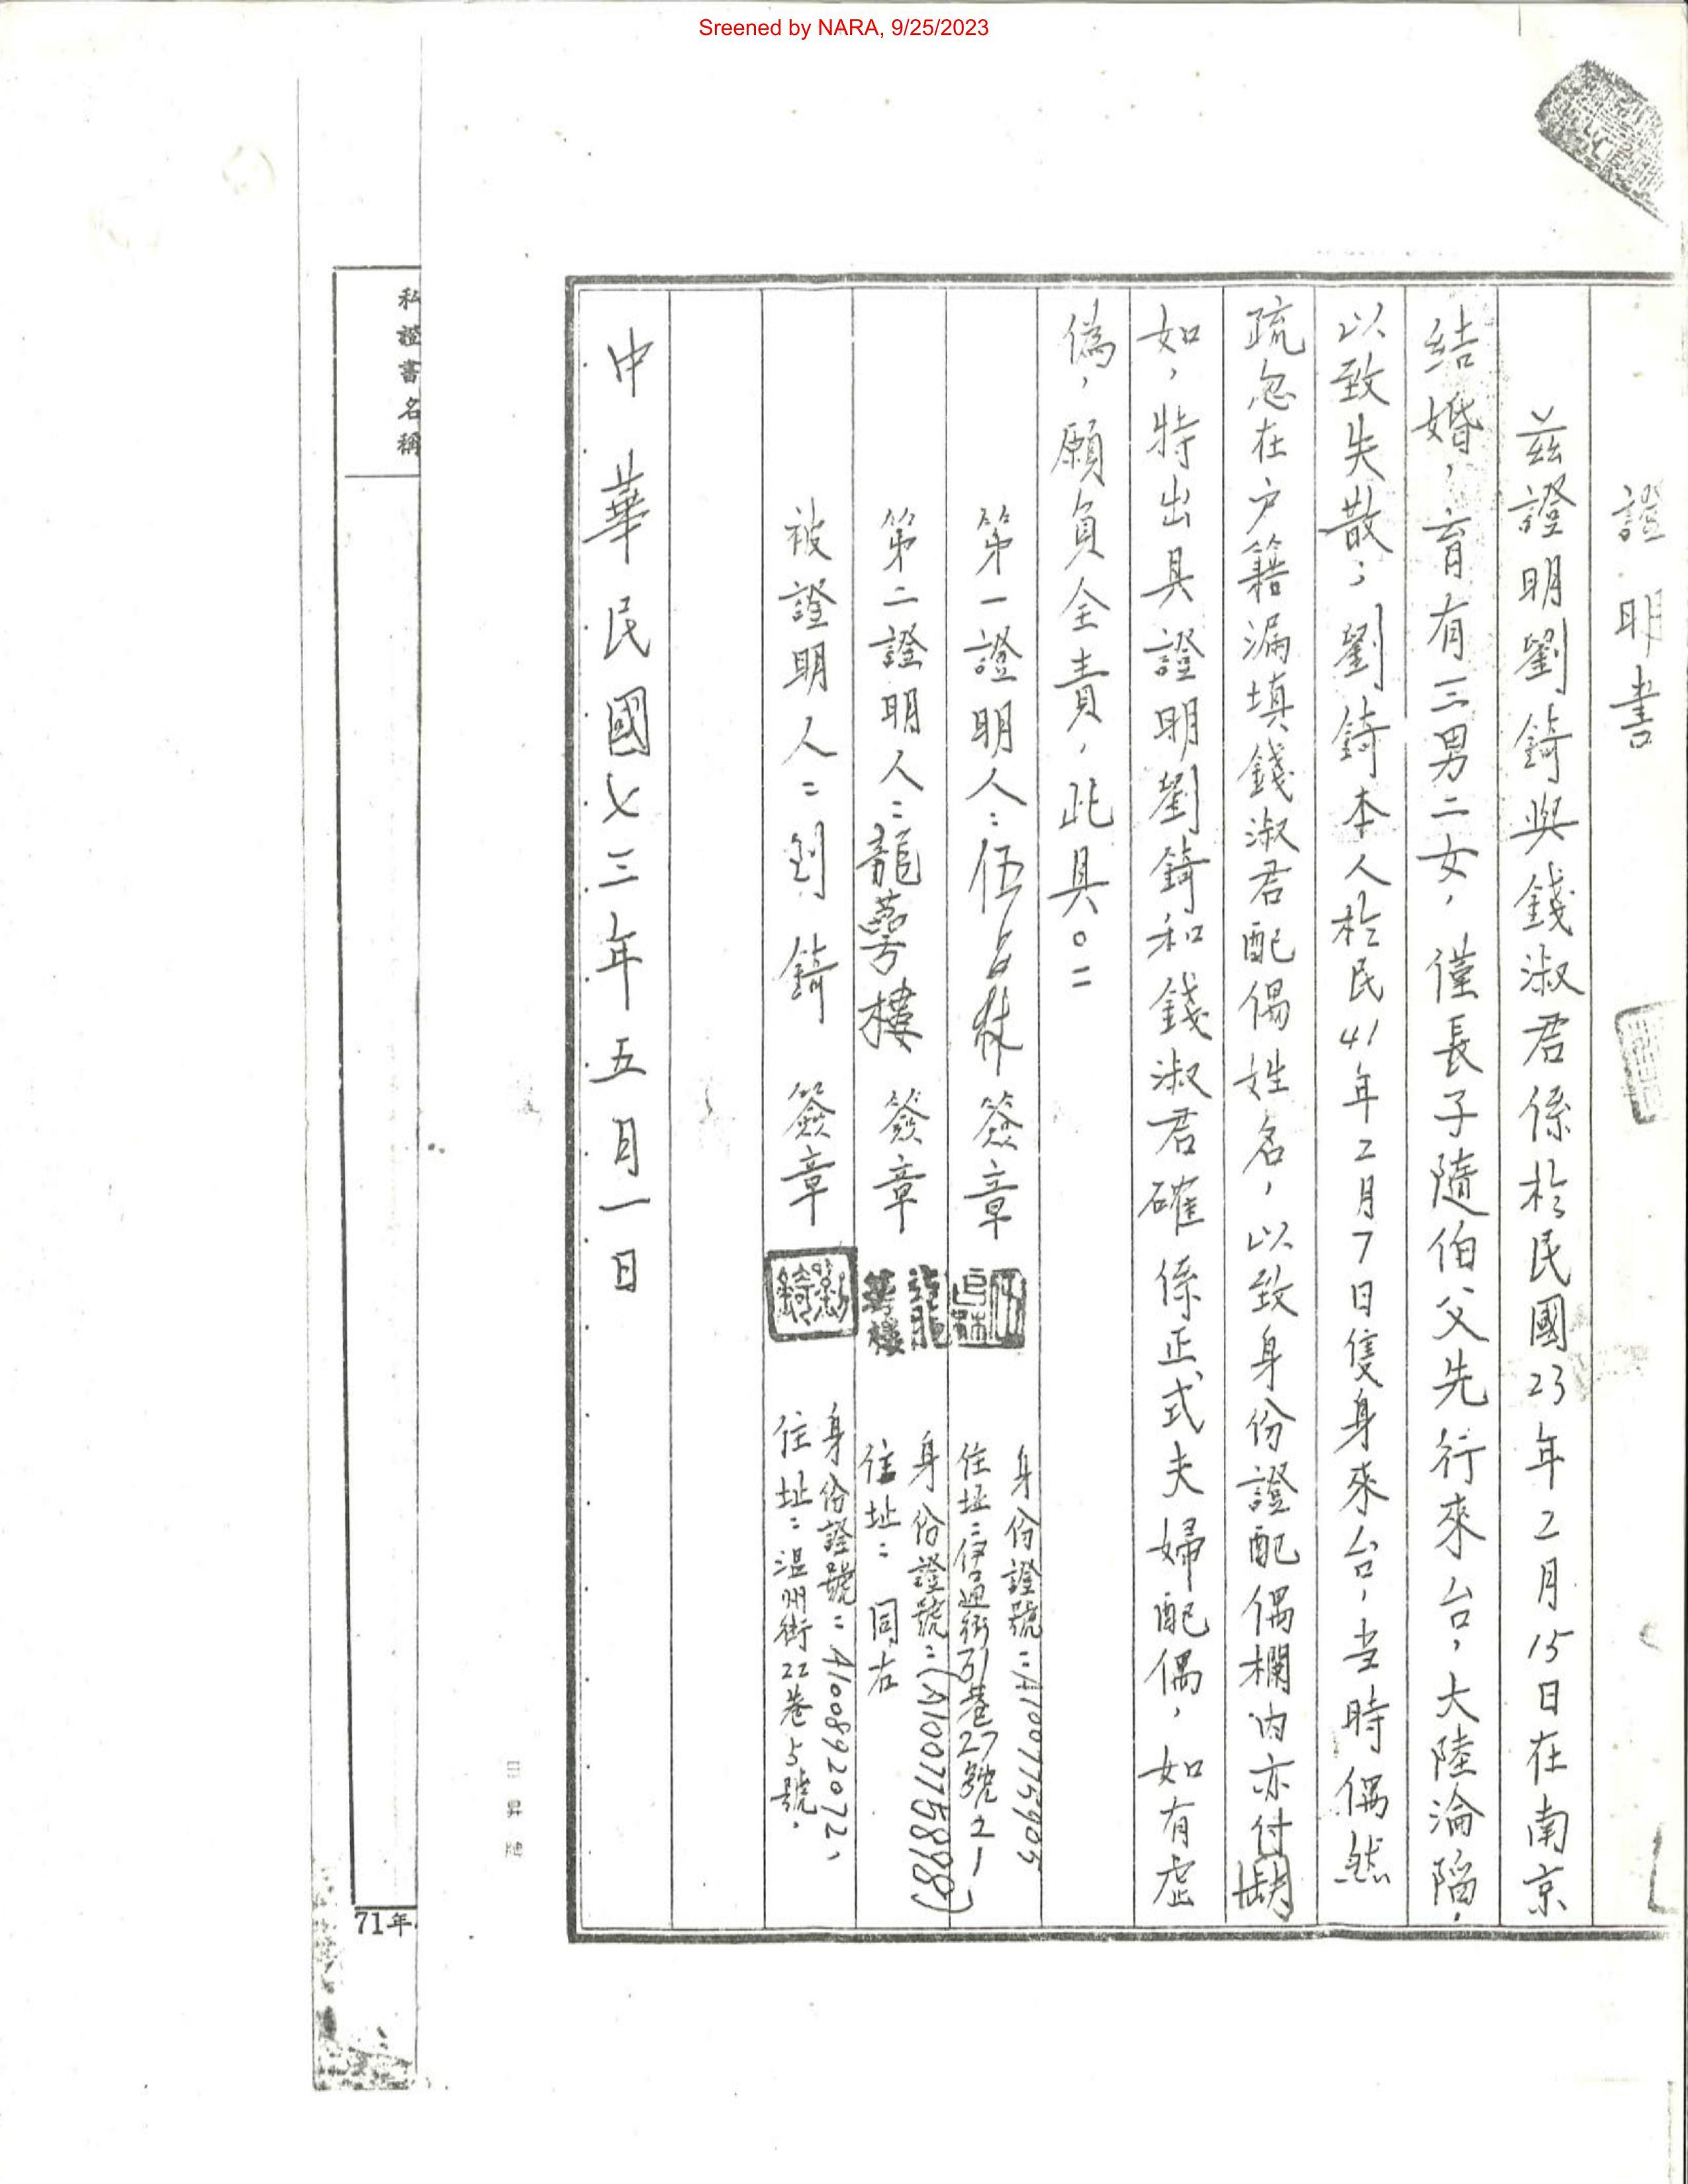 Sreened by NARA, 9/25/2023
證明書
茲證明劉錡與錢淑君係於民國23年2月15日在南京
結婚，育有三男二女，僅長子隨伯父先行來台，大陸淪陷，
以致失散；劉錡本人於民41年2月7日隻身來台，当時偶然
疏忽在户籍漏填錢淑君配偶姓名，以致身份證配偶欄內亦付闕
如，特出具證明劉錡和錢淑君確係正式夫婦配偶，如有虛
偽，願負全責，此具。=
第一證明人：伍 簽章
身份證號：A100775905
住址：伊通街51巷27號2-1
第二證明人：龍萼樓 簽章
龍萼樓
身份證號：(A100775898)
住址：同右
被證明人：劉錡 簽章
劉錡
身份證號：A100892072，
住址：温州街22巷5號．
中華民國七三年五月一日
日昇牌
私證書名稱
71年